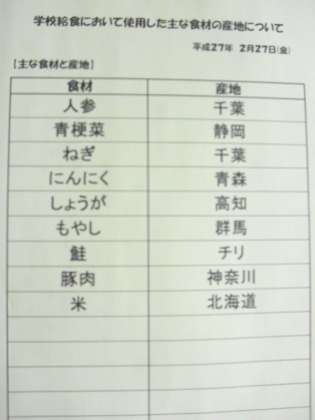 学校給食において使用した主な食材の産地について
平成27年 2月27日(金)
[主な食材と産地]
食材 産地
人参 千葉
青梗菜 静岡
ねぎ 千葉
にんにく 青森
しょうが 高知
もやし 群馬
鮭 チリ
豚肉 神奈川
米 北海道